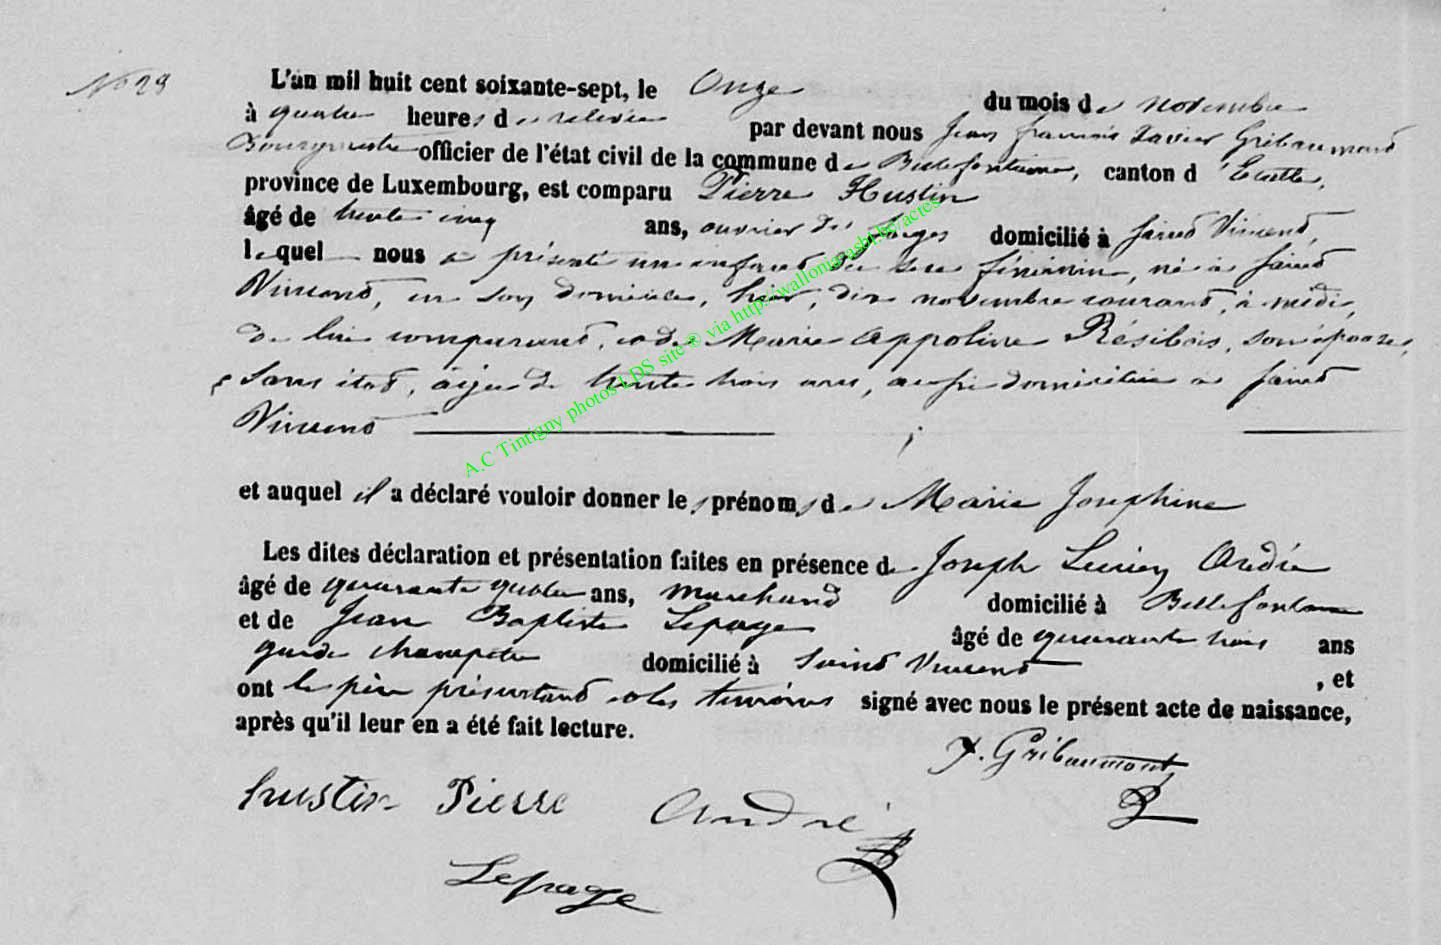 No 29
L'an mil huit cent soixante-sept, le Onze du mois de novembre
à quatre heures de relevée par devant nous Jean françois Xavier Gribaumont
Bourgmestre officier de l'état civil de la commune de Bellefontaine, canton d'Etalle,
province de Luxembourg, est comparu Pierre Hustin
âgé de trente cinq ans, ouvrier de forges domicilié à Saint Vincent,
lequel nous a présenté un enfant du sexe féminin, né à Saint
Vincent, en son domicile, hier, dix novembre courant, à midi,
de lui comparant, et de Marie Appoline Résibois, son épouse,
sans état, âgée de trente trois ans, aussi domiciliée à Saint
Vincent
et auquel il a déclaré vouloir donner les prénoms de Marie Joséphine
Les dites déclaration et présentation faites en présence de Joseph Lucien André
âgé de quarante quatre ans, marchand domicilié à Bellefontaine
et de Jean Baptiste Lepage âgé de quarante trois ans
garde champêtre domicilié à Saint Vincent, et
ont le père présentant et les témoins signé avec nous le présent acte de naissance,
après qu'il leur en a été fait lecture.
X. Gribaumont
hustin Pierre André
Lepage
A.C Tintigny photos LDS site © via http://wallonia-asbl.be/actes